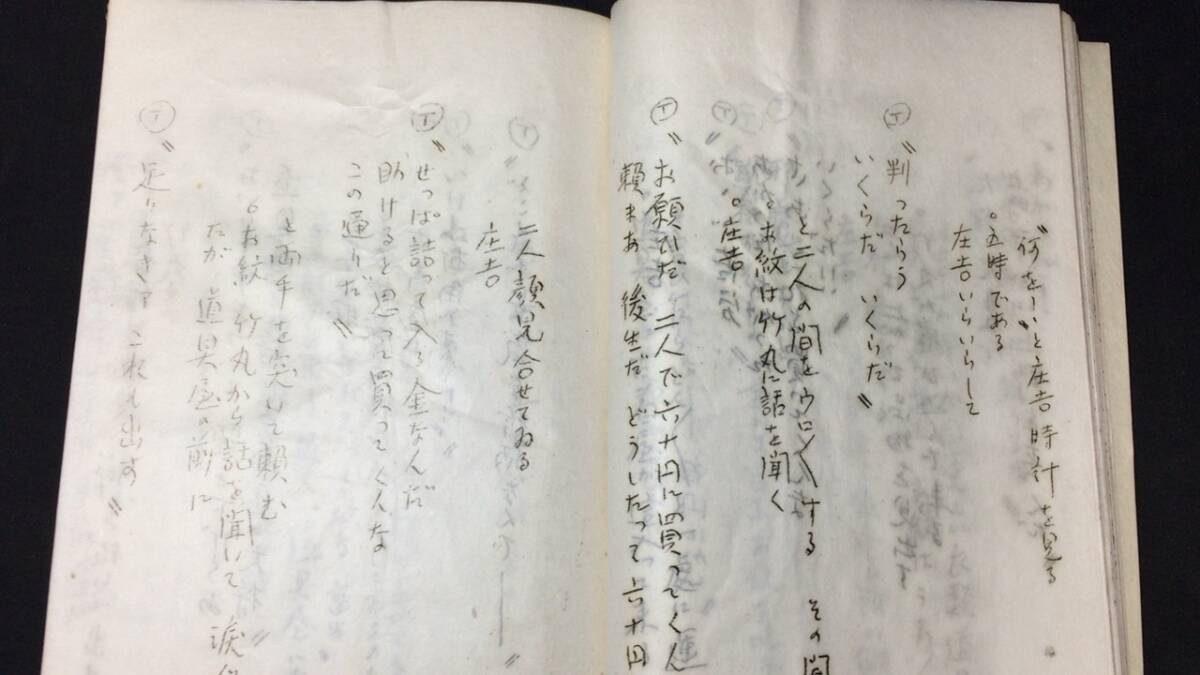 "何を――"と庄吉時計を見る
。五時である
庄吉いらいらして
Ⓣ "判ったらう
いくらだ いくらだ"
と二人の間をウロ〱する その間
。お紋は竹丸に話を聞く
。庄吉
Ⓣ "お願ひだ 二人で六十円に買ってくん
頼まあ 後生だ どうしたって六十円
二人顔見合せてゐる
庄吉
Ⓣ "せっぱ詰って入る金なんだ
助けると思って買ってくんな
この通りだ"
と両手を突いて頼む
。お紋 竹丸から話を聞いて 涙
だが 道具屋の前に
Ⓣ "足りなきア これも出す"